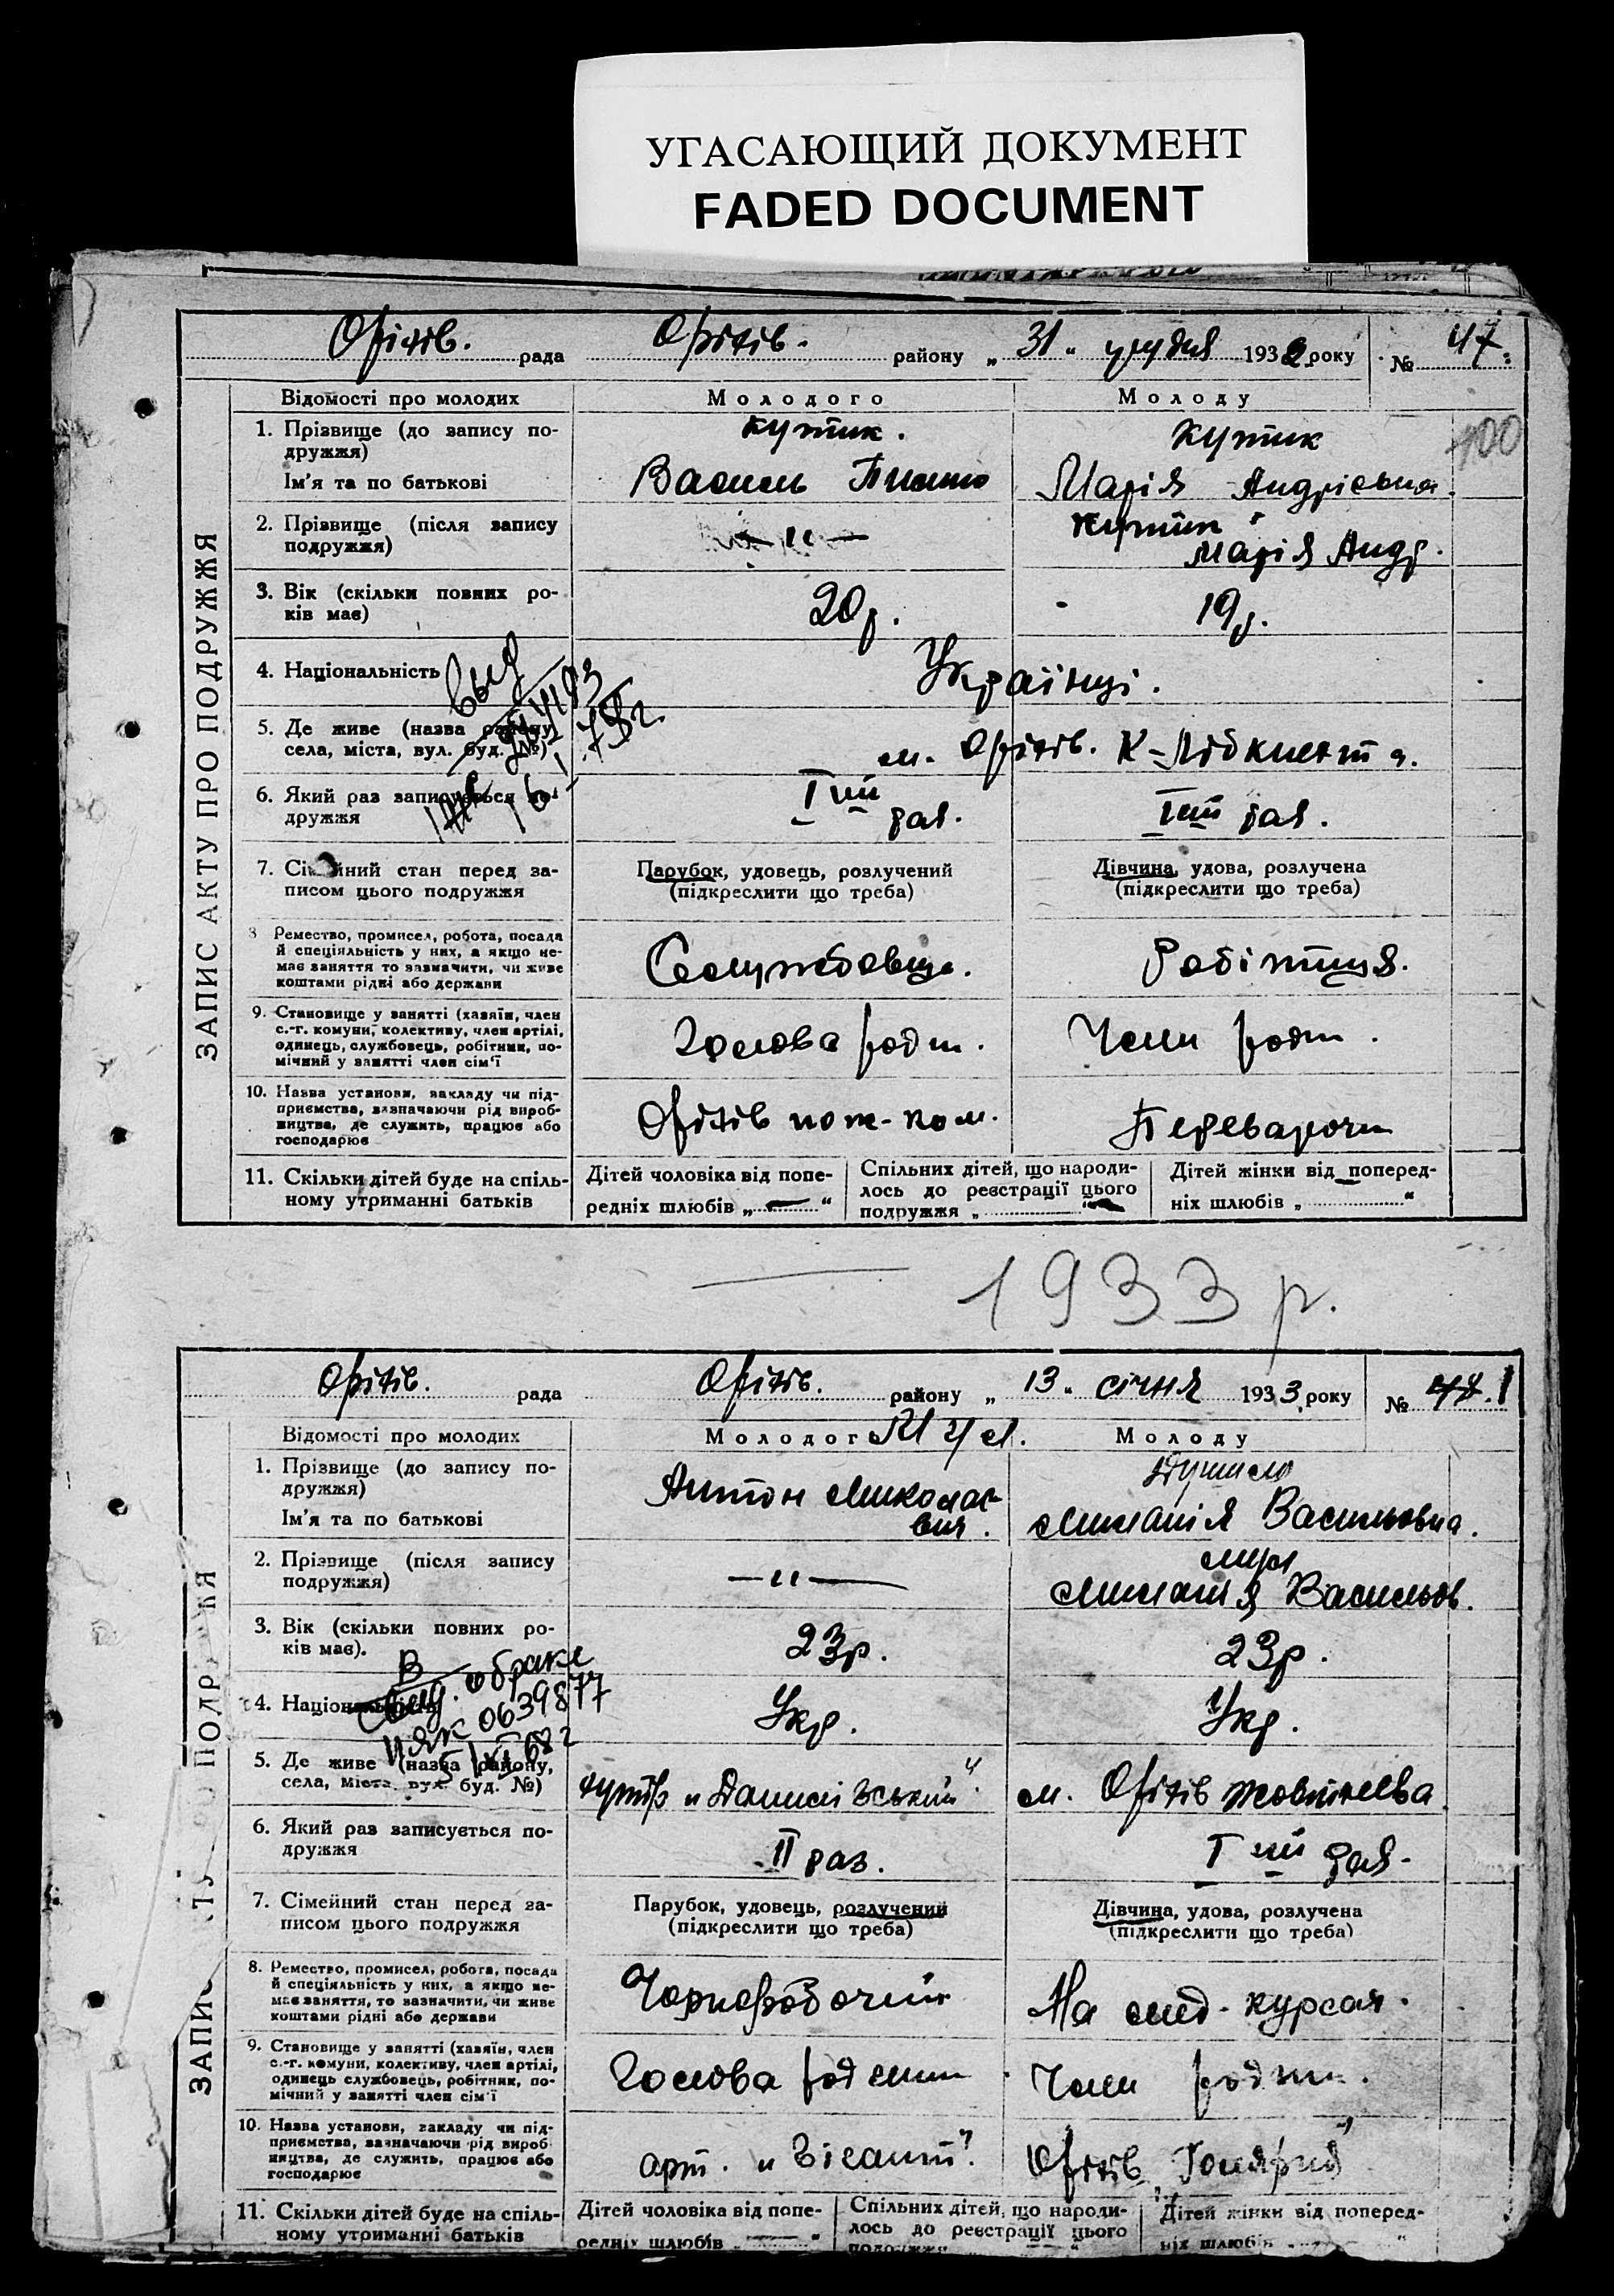 УГАСАЮЩИЙ ДОКУМЕНТ
FADED DOCUMENT
Оріхів. рада Оріхів. району „ 31 „ грудня 1932 року № 47.
ЗАПИС АКТУ ПРО ПОДРУЖЖЯ
Відомості про молодих Молодого Молоду
1. Прізвище (до запису по-
дружжя)
Кутик. Кутик
100
Ім'я та по батькові Василь Марія Андрієвна.
2. Прізвище (після запису
подружжя)
— „ — Кутик
Марія Андр.
3. Вік (скільки повних ро-
ків має)
20 р. 19 р.
4. Національність Українці.
5. Де живе (назва району,
села, міста, вул. буд. №)
м. Оріхів. К-Лібкнехта.
6. Який раз записується по-
дружжя
I ий раз. I ий раз.
7. Сімейний стан перед за-
писом цього подружжя
Парубок, удовець, розлучений
(підкреслити що треба)
Дівчина, удова, розлучена
(підкреслити що треба)
8 Ремество, промисел, робота, посада
й спеціяльність у них, а якщо не-
має заняття то зазначити, чи живе
коштами рідні або держави
Службовець. Робітниця.
9. Становище у занятті (хазяїн, член
с.-г. комуни, колективу, член артілі,
одинець, службовець, робітник, по-
мічний у занятті член сім'ї
Голова род. Член родин.
10. Назва установи, закладу чи під-
приємства, зазначаючи рід вироб-
ництва, де служить, працює або
господарює
Оріхів
11. Скільки дітей буде на спіль-
ному утриманні батьків
Дітей чоловіка від попе-
редніх шлюбів „ — “
Спільних дітей, що народи-
лось до реєстрації цього
подружжя „ — “
Дітей жінки від поперед-
ніх шлюбів „ “
1933 р.
Оріхів. рада Оріхів. району „ 13 „ січня 1933 року № 48. 1
ЗАПИС
Відомості про молодих Молодог Молоду
1. Прізвище (до запису по-
дружжя)
Ім'я та по батькові
Антон Миколає-
вич.
Васильовна.
2. Прізвище (після запису
подружжя)
— „ —
Васильов.
3. Вік (скільки повних ро-
ків має).
23 р. 23 р.
4. Національність Укр. Укр.
В
свид. о браке
ІІ ЯК 0639877
5. Де живе (назва району,
села, міста, вул. буд. №)
хутір „Данилівський“. м. Оріхів Жовтнева
6. Який раз записується по-
дружжя
II раз. I ий раз.
7. Сімейний стан перед за-
писом цього подружжя
Парубок, удовець, розлучений
(підкреслити що треба)
Дівчина, удова, розлучена
(підкреслити що треба)
8. Ремество, промисел, робота, посада
й спеціяльність у них, а якщо не-
має заняття, то зазначити, чи живе
коштами рідні або держави
Чорноробочий На мед. курсах.
9. Становище у занятті (хазяїн, член
с.-г. комуни, колективу, член артілі,
одинець службовець, робітник, по-
мічний у занятті член сім'ї
Голова родини Член родин.
10. Назва установи, закладу чи під-
приємства, зазначаючи рід вироб
ництва, де служить, працює або
господарює
арт. „Гігант“. Оріхів
11. Скільки дітей буде на спіль-
ному утриманні батьків
Дітей чоловіка від попе-
редніх шлюбів „ — “
Спільних дітей, що народи-
лось до реєстрації цього
подружжя
Дітей жінки від поперед-
ніх шлюбів „ “